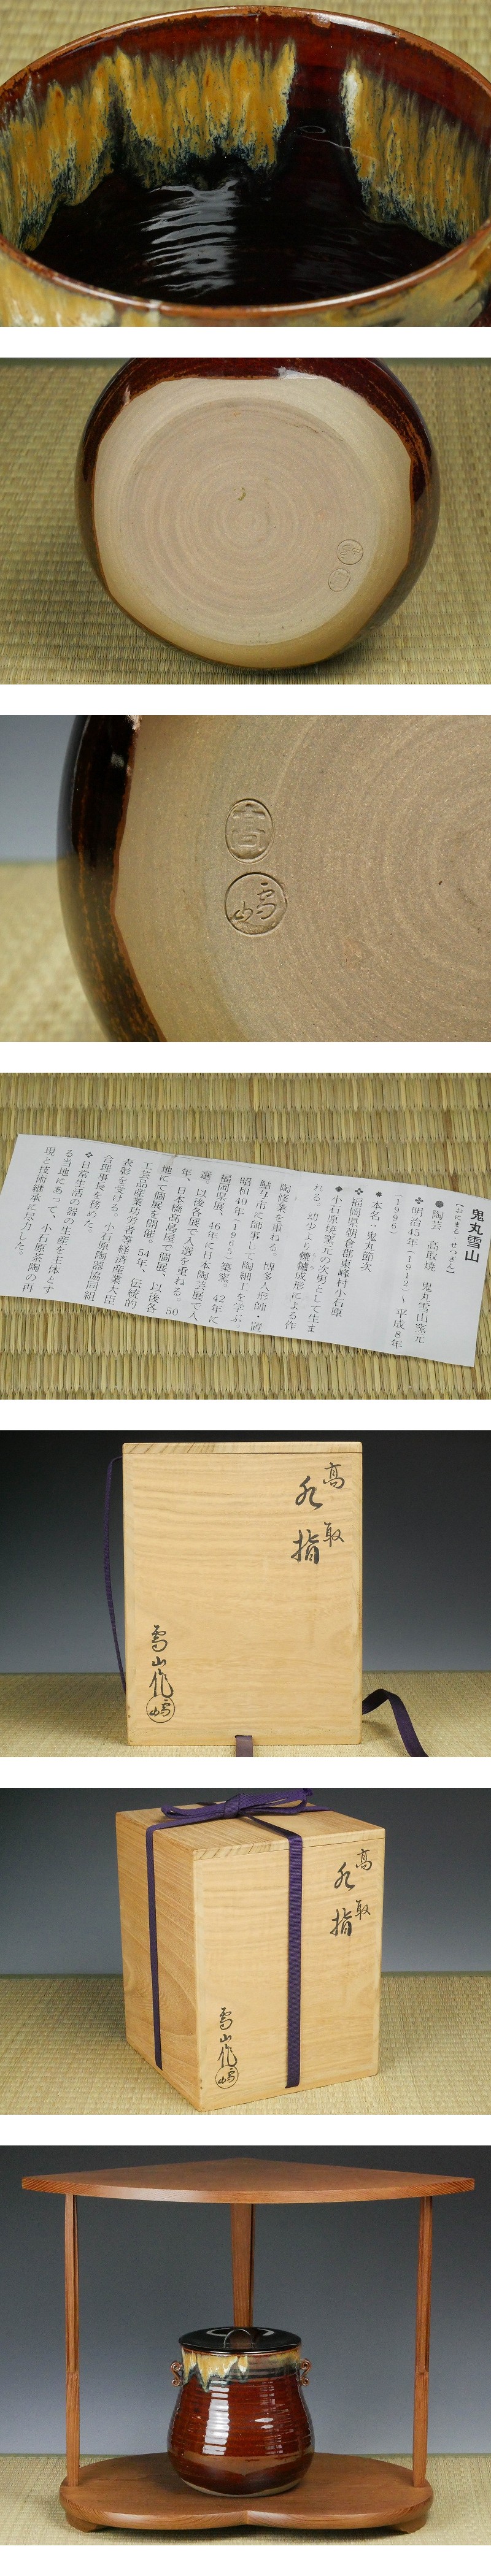 高
雪山
鬼丸雪山
【おにまる せつざん】
●陶芸 高取焼 鬼丸雪山窯元
❖明治45年（1912）～ 平成8年
（1996）
＊本名：鬼丸節次
❖福岡県朝倉郡東峰村小石原
◆小石原焼窯元の次男として生ま
れる 幼少より轆轤成形による作
陶修業を重ねる。博多人形師・置
鮎与市に師事して陶細工を学ぶ
昭和40年（1965）築窯。42年に
福岡県展、46年に日本陶芸展で入
選、以後各展で入選を重ねる。50
年、日本橋髙島屋で個展、以後各
地にて個展を開催。54年、伝統的
工芸品産業功労者等経済産業大臣
表彰を受ける。小石原陶器協同組
合理事長を務めた。
❖日常生活の器の生産を主体とす
る当地にあって、小石原茶陶の再
現と技術継承に尽力した。
高取
水指
雪山作
雪山
高取
水指
雪山作
雪山